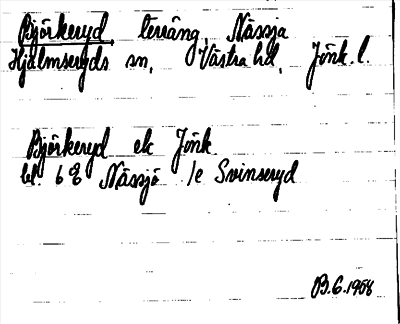 Björkeryd, terräng, Nässja
Hjälmseryds sn, Västra hd, Jönk. l.
Björkeryd ek Jönk
bl. 68 Nässjö 1e Svinseryd
B.G. 1958